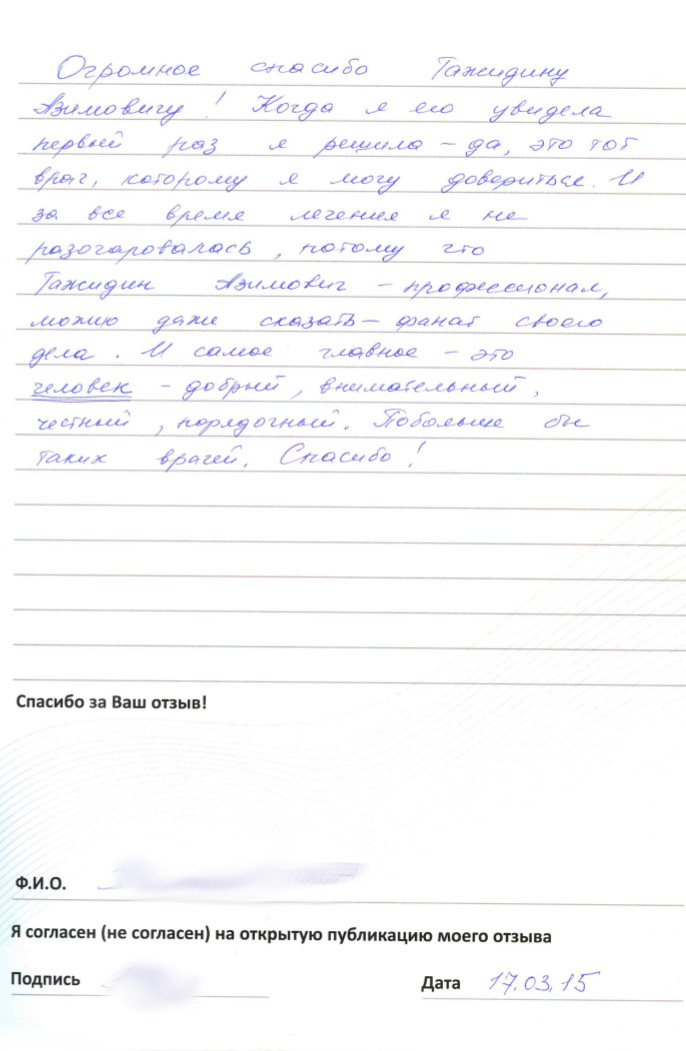 Огромное спасибо Тажидину
Азимовичу! Когда я его увидела
первый раз я решила – да, это тот
врач, которому я могу довериться. И
за все время лечения я не
разочаровалась, потому что
Тажидин Азимович – профессионал,
можно даже сказать – фанат своего
дела. И самое главное – это
человек – добрый, внимательный,
честный, порядочный. Побольше бы
таких врачей. Спасибо!
Спасибо за Ваш отзыв!
Ф.И.О.
Я согласен (не согласен) на открытую публикацию моего отзыва
Подпись
Дата 17.03.15